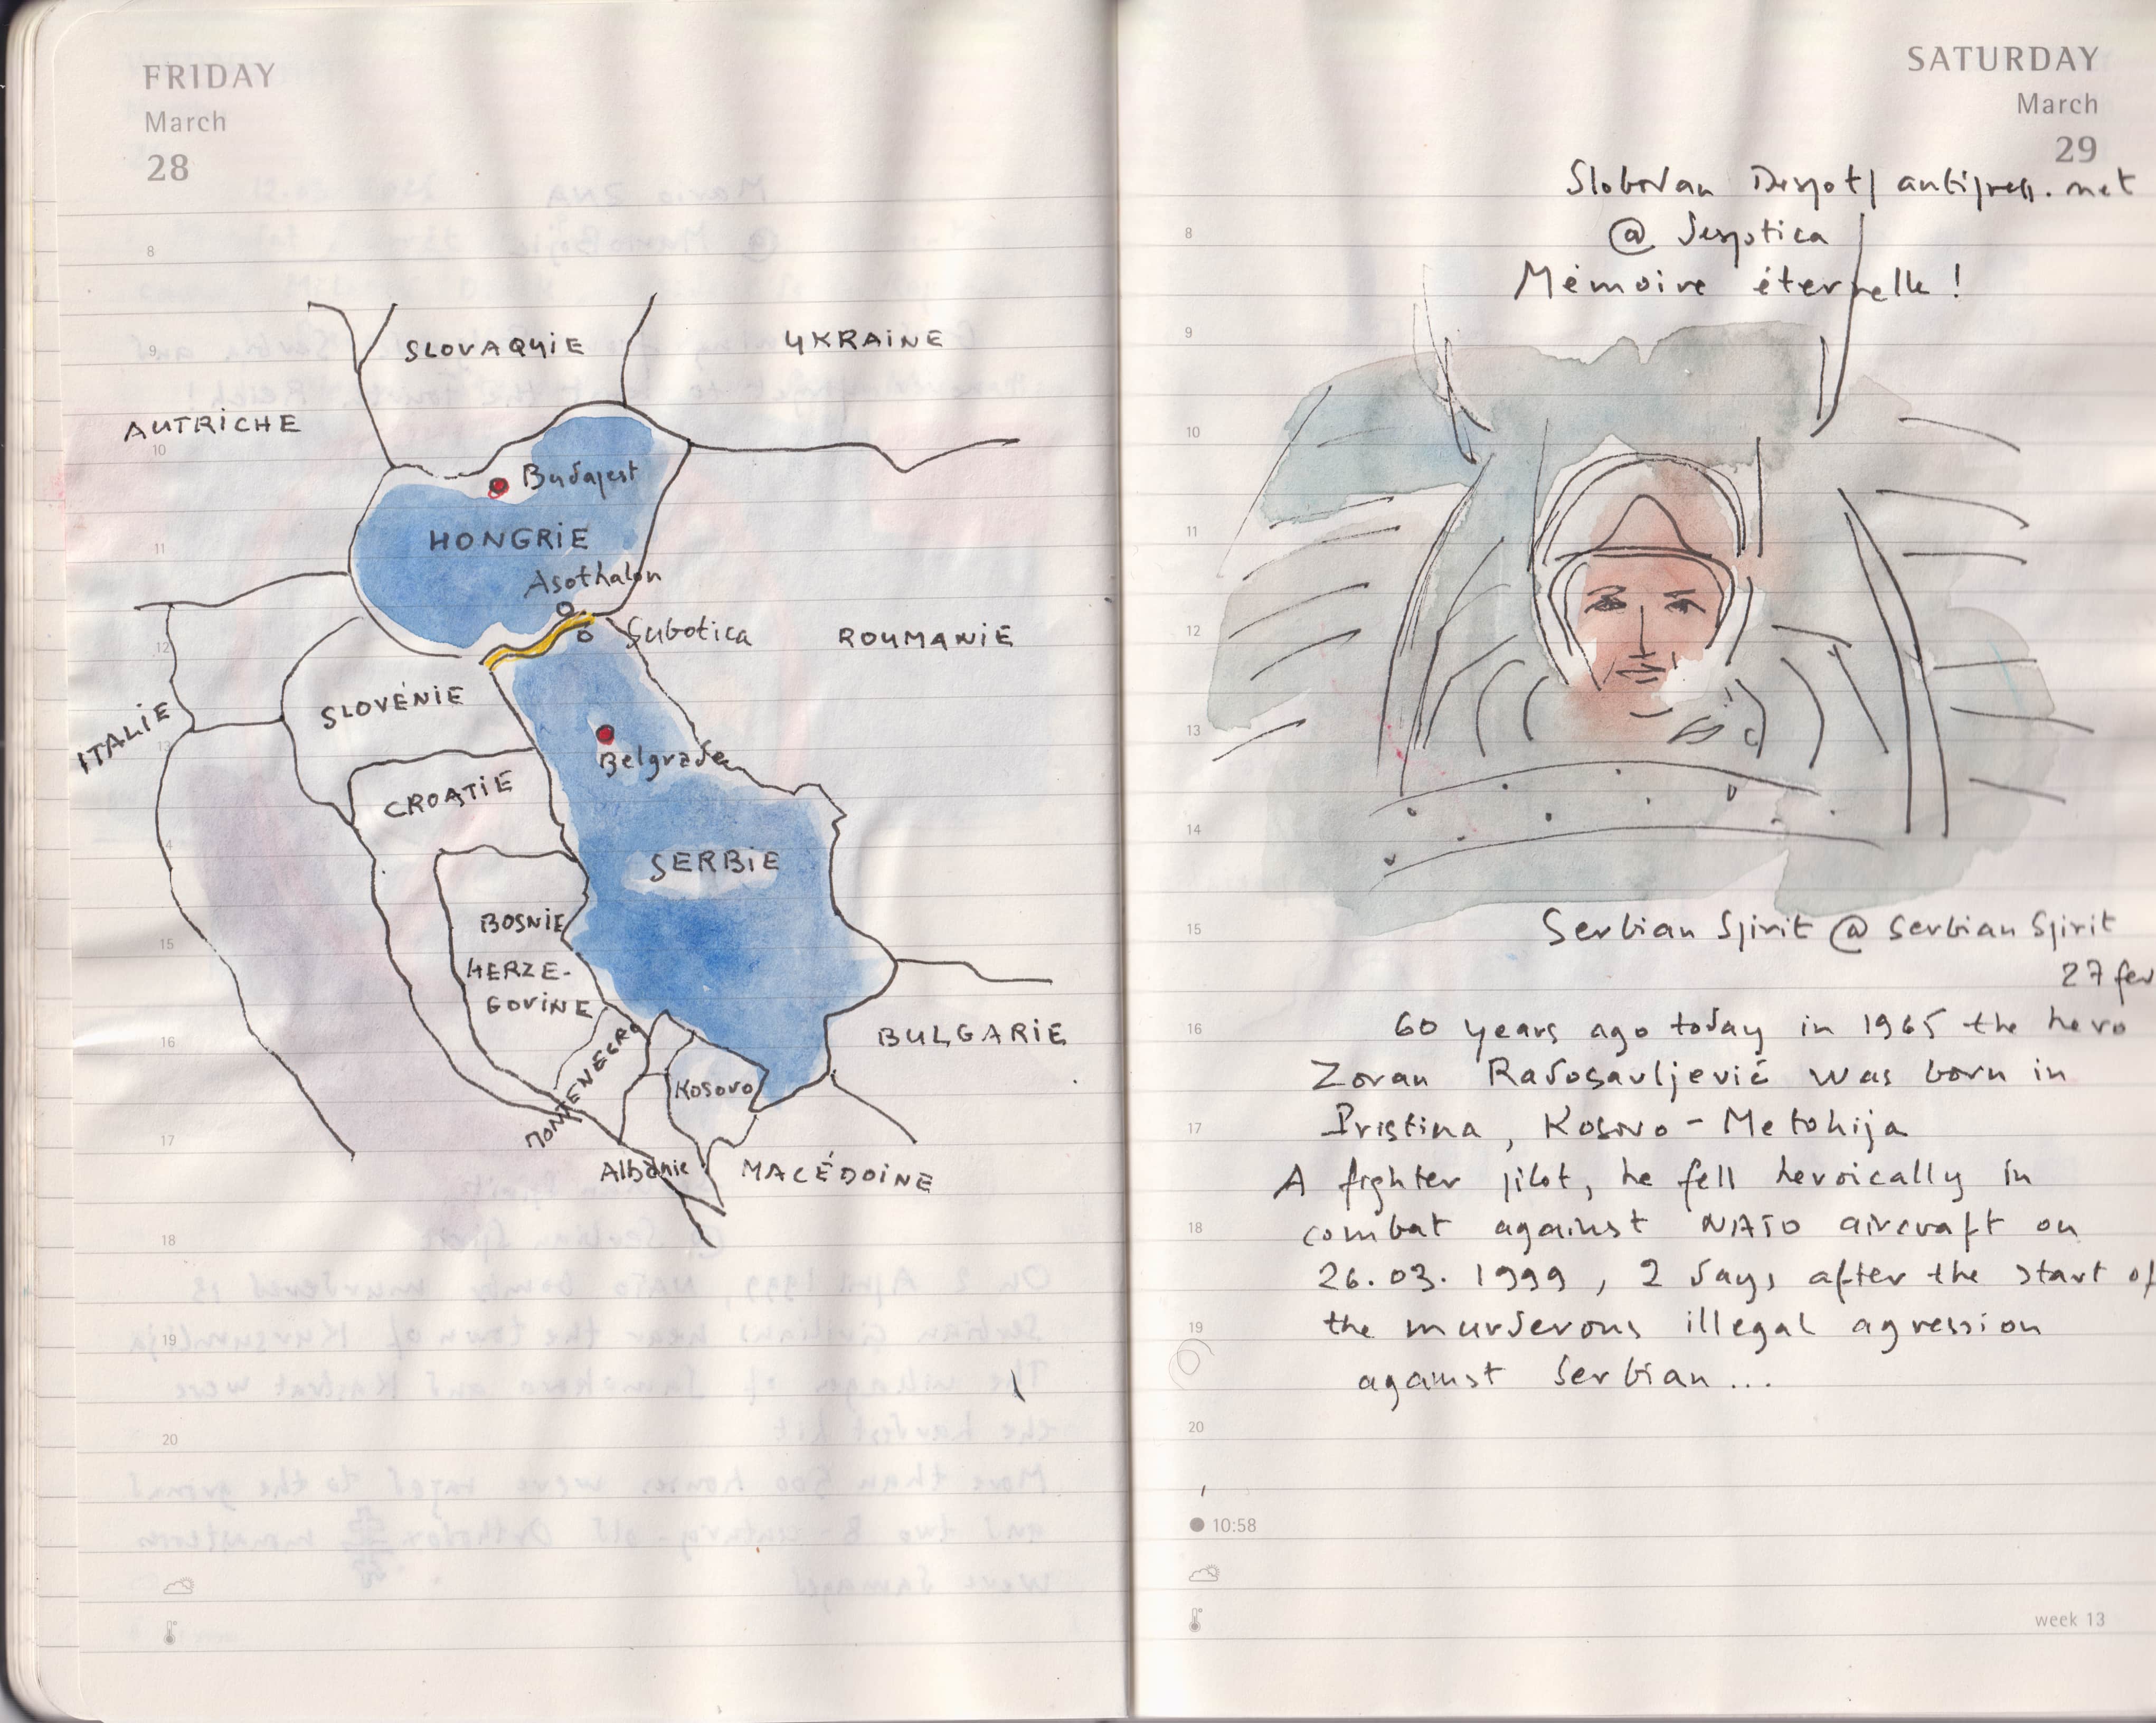 FRIDAY
March
28
8
9
10
11
12
13
14
15
16
17
18
19
20
SLOVAQUIE
UKRAINE
AUTRICHE
Budapest
HONGRIE
Asothalon
Subotica
ROUMANIE
SLOVÉNIE
ITALIE
Belgrade
CROATIE
SERBIE
BOSNIE
HERZE-
GOVINE
MONTENEGRO
BULGARIE
Kosovo
Albanie
MACÉDOINE
SATURDAY
March
29
Slobodan Despot | antipress.net
@ despotica
Mémoire éternelle !
8
9
10
11
12
13
14
15
16
17
18
19
20
Serbian Spirit @ Serbian Spirit
27 fev
60 years ago today in 1965 the hero
Zoran Radosavljević was born in
Pristina, Kosovo - Metohija
A fighter pilot, he fell heroically in
combat against NATO aircraft on
26.03.1999, 2 days after the start of
the murderous illegal agression
against Serbian...
10:58
week 13